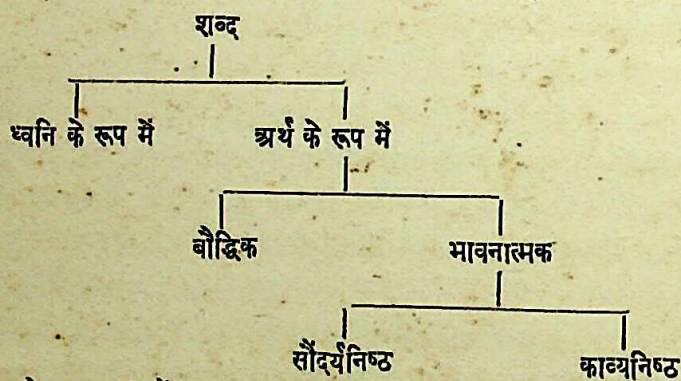 शब्द
ध्वनि के रूप में अर्थ के रूप में
बौद्धिक भावनात्मक
सौंदर्यनिष्ठ काव्यनिष्ठ